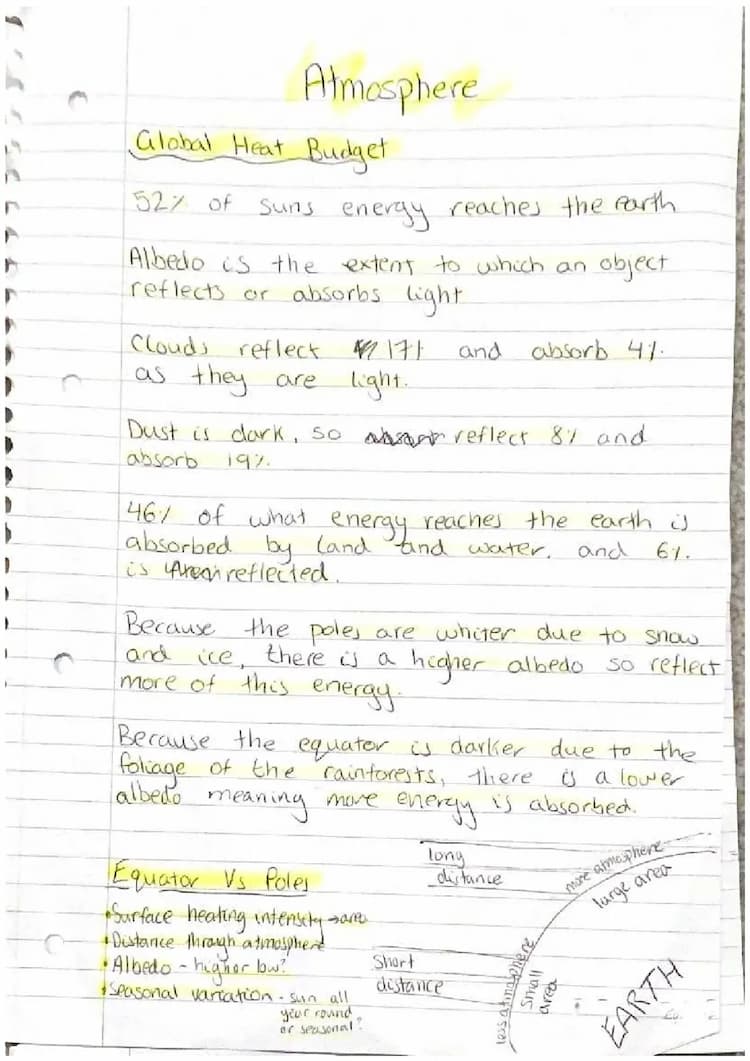 Atmosphere
Global Heat Budget
52% of suns energy reaches the earth
Albedo is the extent to which an object
reflects or absorbs light
Clouds reflect 17% and absorb 4%.
as they are light.
Dust is dark, so reflect 8% and
absorb 19%.
46% of what energy reaches the earth is
absorbed by land and water, and 6%.
is reflected.
Because the poles are whiter due to snow
and ice, there is a higher albedo so reflect
more of this energy.
Because the equator is darker due to the
foliage of the rainforests, there is a lower
albedo meaning more energy is absorbed.
Equator Vs Poles
•Surface heating intensity →area
•Distance through atmosphere
•Albedo - higher low?
•Seasonal variation - sun all
year round
or seasonal?
long
distance
more atmosphere
large area
short
distance
less atmosphere
small
area
EARTH